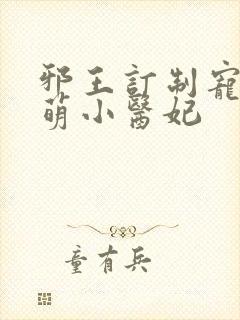 邪王訂制寵
萌小醫妃
童有兵